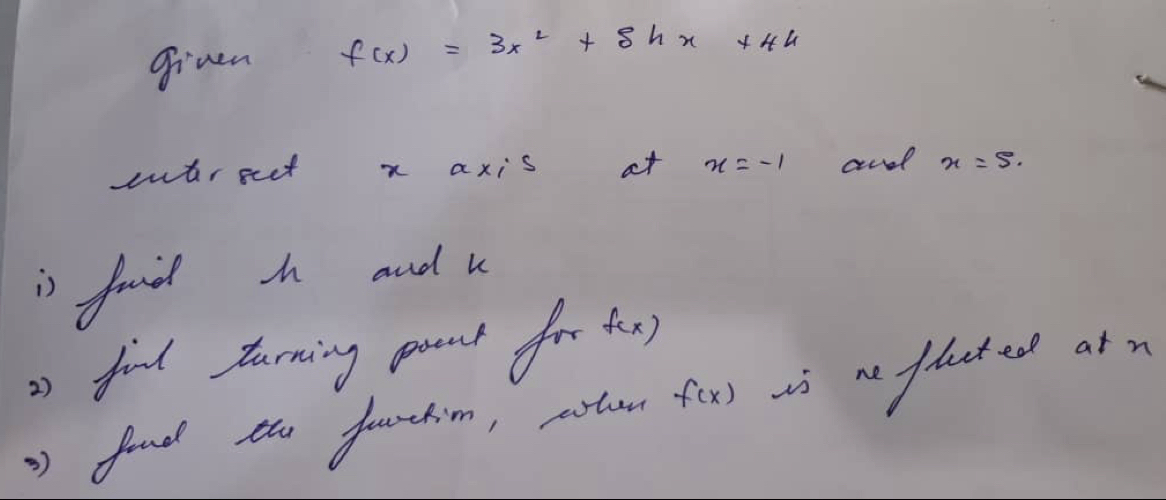 Given f(x) = 3x² + 5hx + 4k
intersect x axis at x = -1 and x = 5.
i) find h and k
2) find turning point for f(x)
3) find the function, when f(x) is reflected at x